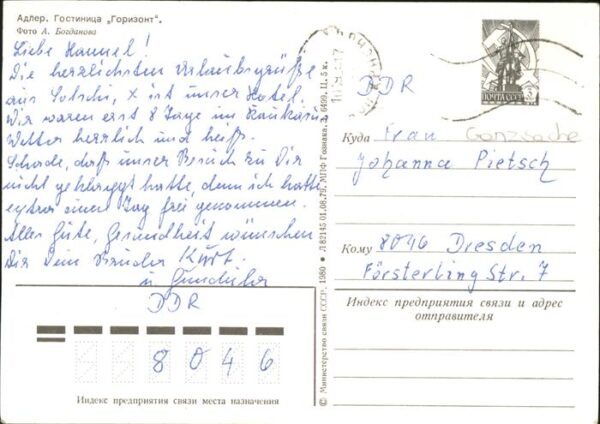 Адлер. Гостиница „Горизонт".
Фото А. Богданова
Liebe Hannel!
Die herzlichsten Urlaubsgrüße
aus Sotschi, x ist unser Hotel.
Wir waren erst 8 Tage im Kaukasus
Wetter herrlich und heiß.
Schade, daß unser Besuch zu Dir
nicht geklappt hatte, denn ich hatte
extra einen Tag frei genommen.
Alles Gute, Gesundheit wünschen
Dir Dein Bruder Kurt.
u. Gundula
DDR
8046
Индекс предприятия связи места назначения
© Министерство связи СССР. 1980 • Л 82145 01.08.79. МПФ Гознака. З. 6499. Ц. 5 к.
ПОЧТА СССР
DDR
Куда Frau
Johanna Pietsch
Кому 8046 Dresden
Försterling Str. 7
Индекс предприятия связи и адрес
отправителя